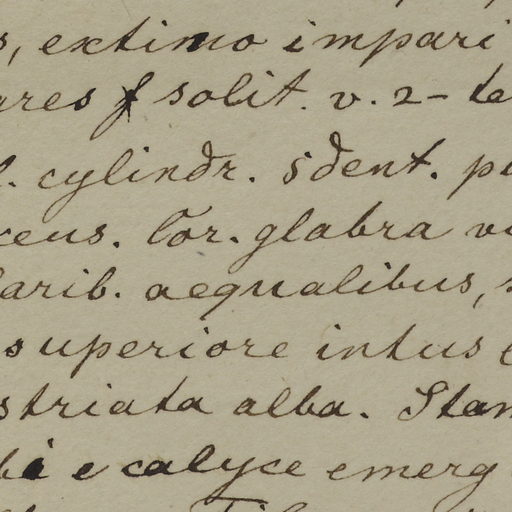 extimo impari
solit. v. 2-
cylindr. 5dent.
Cor. glabra
aequalibus,
superiore intus
striata alba. Stam
e calyce emerg